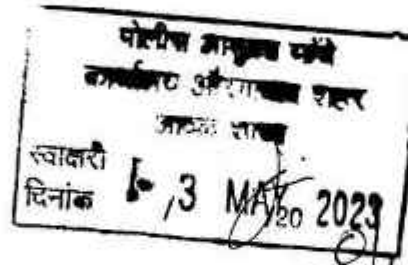 पोलीस आयुक्त यांचे
कार्यालय औरंगाबाद शहर
आवक शाखा
स्वाक्षरी
दिनांक - 3 MAY 2023